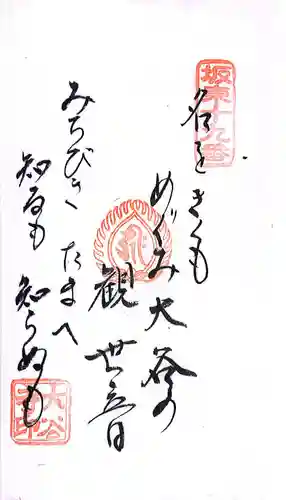 坂東十九番
名をきくも
めぐみ大谷の
観世音
みちびきたまへ
知るも知らぬも
大谷寺印